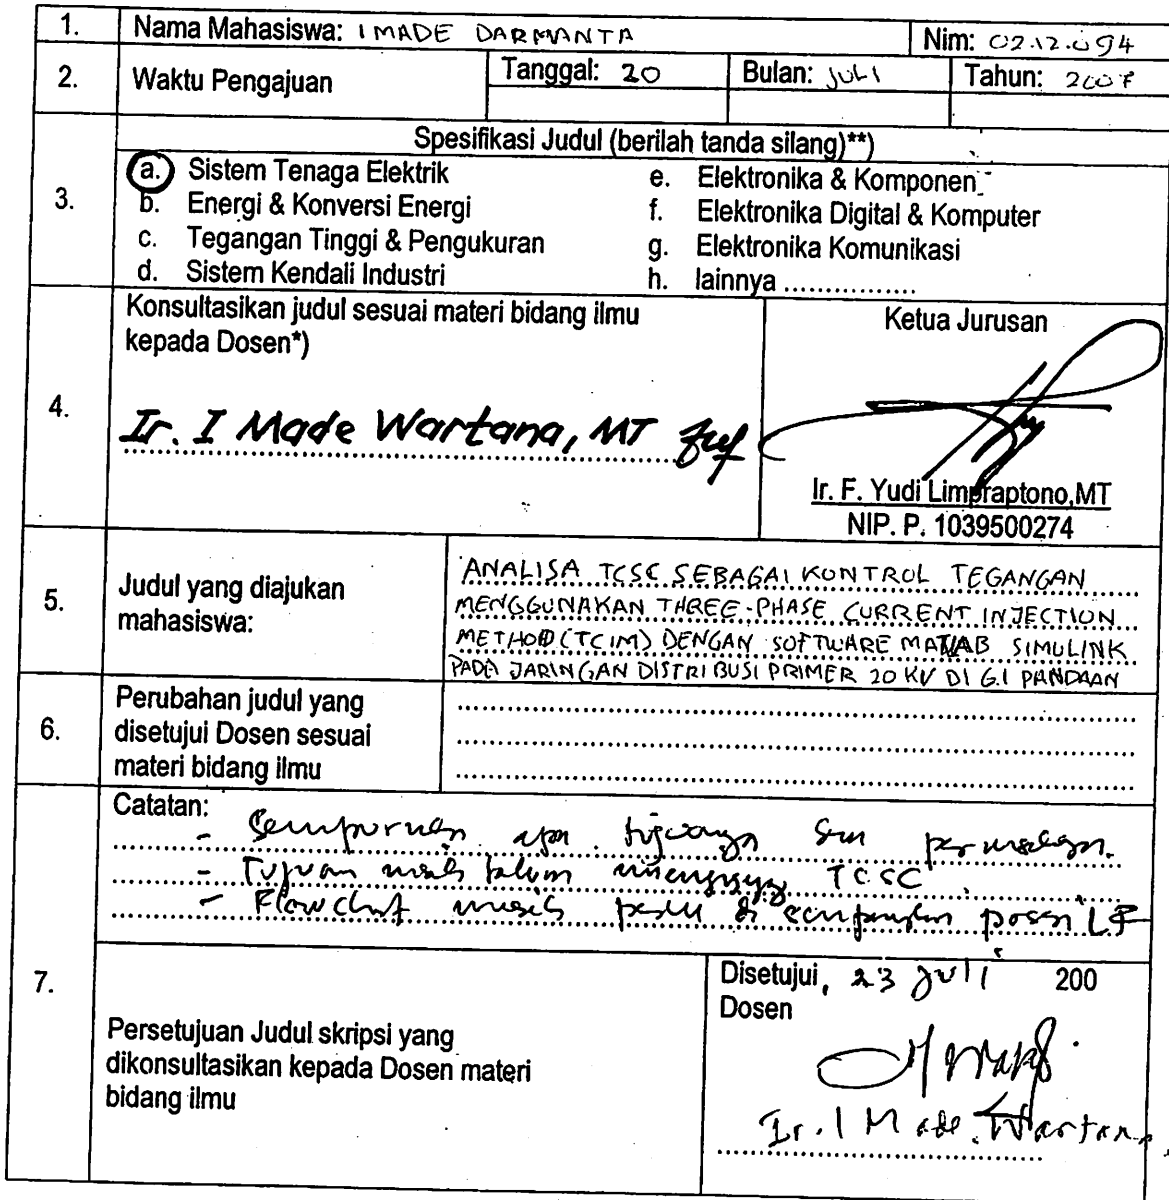 1. Nama Mahasiswa: I MADE DARMANTA Nim: 02.12.094
2. Waktu Pengajuan Tanggal: 20 Bulan: JULI Tahun: 2007
Spesifikasi Judul (berilah tanda silang)**)
3.
a. Sistem Tenaga Elektrik
b. Energi & Konversi Energi
c. Tegangan Tinggi & Pengukuran
d. Sistem Kendali Industri
e. Elektronika & Komponen
f. Elektronika Digital & Komputer
g. Elektronika Komunikasi
h. lainnya ................
4.
Konsultasikan judul sesuai materi bidang ilmu
kepada Dosen*)
Ir. I Made Wartana, MT
Ketua Jurusan
Ir. F. Yudi Limpraptono,MT
NIP. P. 1039500274
5.
Judul yang diajukan
mahasiswa:
ANALISA TCSC SEBAGAI KONTROL TEGANGAN
MENGGUNAKAN THREE-PHASE CURRENT INJECTION
METHOD (TCIM) DENGAN SOFTWARE MATLAB SIMULINK
PADA JARINGAN DISTRIBUSI PRIMER 20 KV DI G.I PANDAAN
6.
Perubahan judul yang
disetujui Dosen sesuai
materi bidang ilmu
7.
Catatan:
-
- Tujuan masih belum TCSC
- Flowchart masih perlu di
Persetujuan Judul skripsi yang
dikonsultasikan kepada Dosen materi
bidang ilmu
Disetujui, 23 Juli 200
Dosen
Ir. I Made Wartana